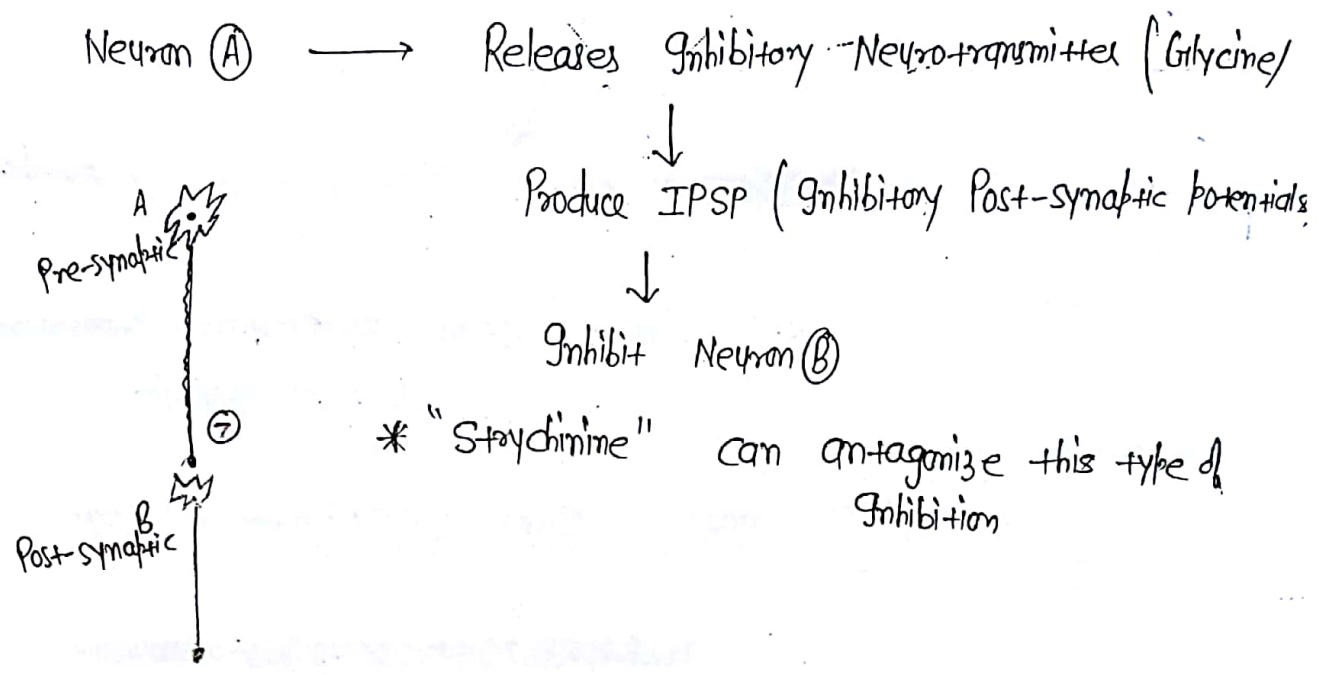 Neuron A → Releases Inhibitory Neurotransmitter (Glycine/
↓
Produce IPSP (Inhibitory Post-synaptic potentials
↓
Inhibit Neuron B
A
Pre-synaptic
* "Strychinine" can antagonize this type of
Inhibition
B
Post-synaptic